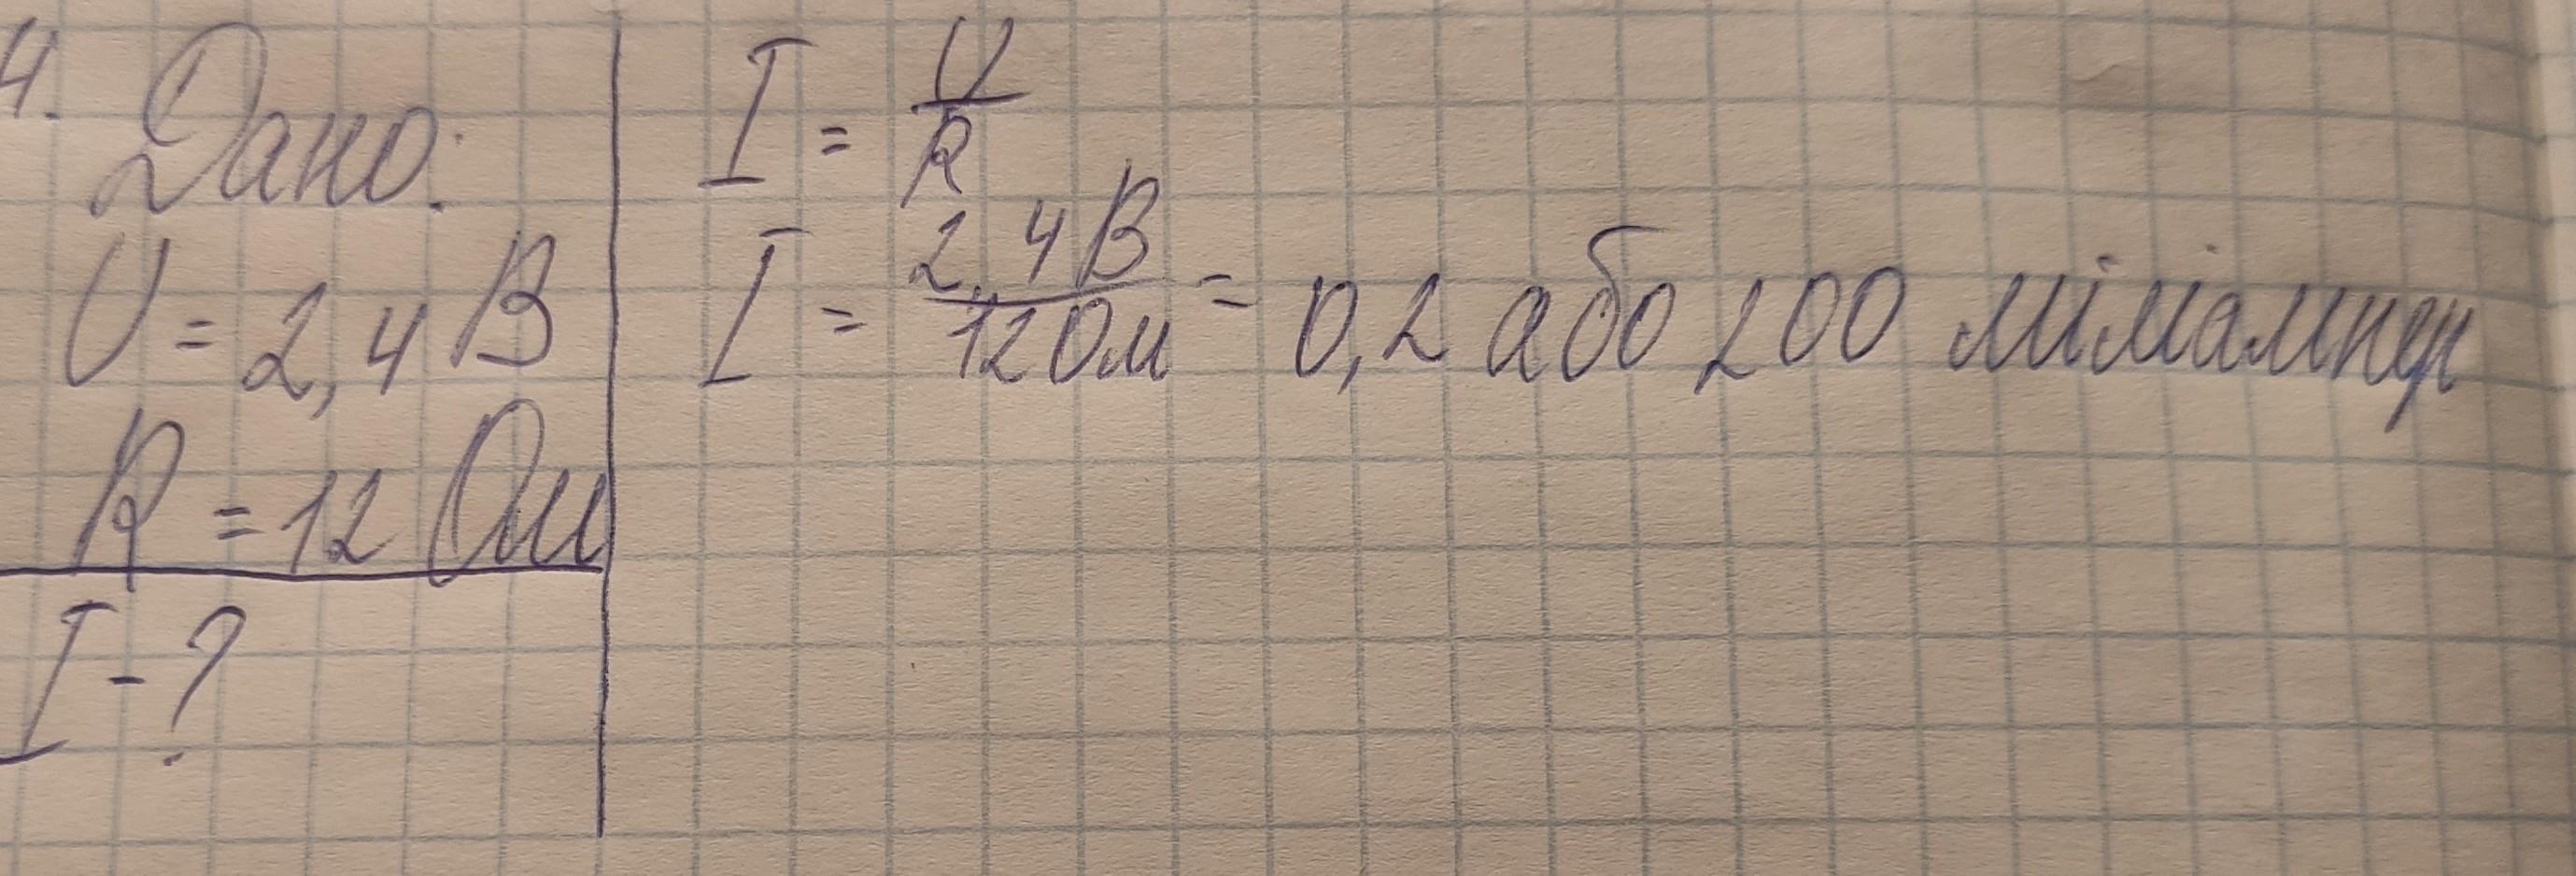 4. Дано:
U = 2,4 В
R = 12 Ом
I - ?
I = U/R
I = 2,4 В/12 Ом = 0,2 або 200 мімампер